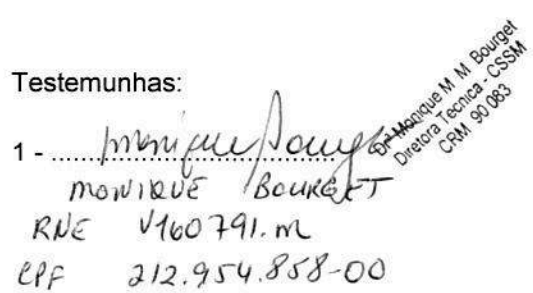 Testemunhas:
1 - monique Bourget
Drª Monique M M Bourget
Diretora Tecnica - CSSM
CRM 90 083
MONIQUE BOURGET
RNE V160791.M
CPF 212.954.858-00